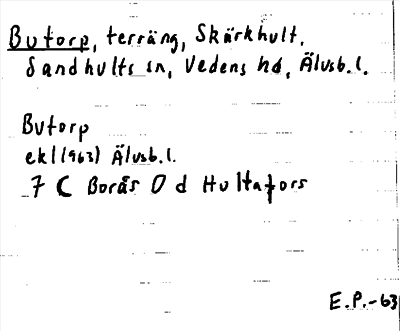 Butorp, terräng, Skärkhult,
Sandhults sn, Vedens hd, Älvsb.l.
Butorp
ekl(1963) Älvsb.l.
7 C Borås 0 d Hultafors
E.P.-63